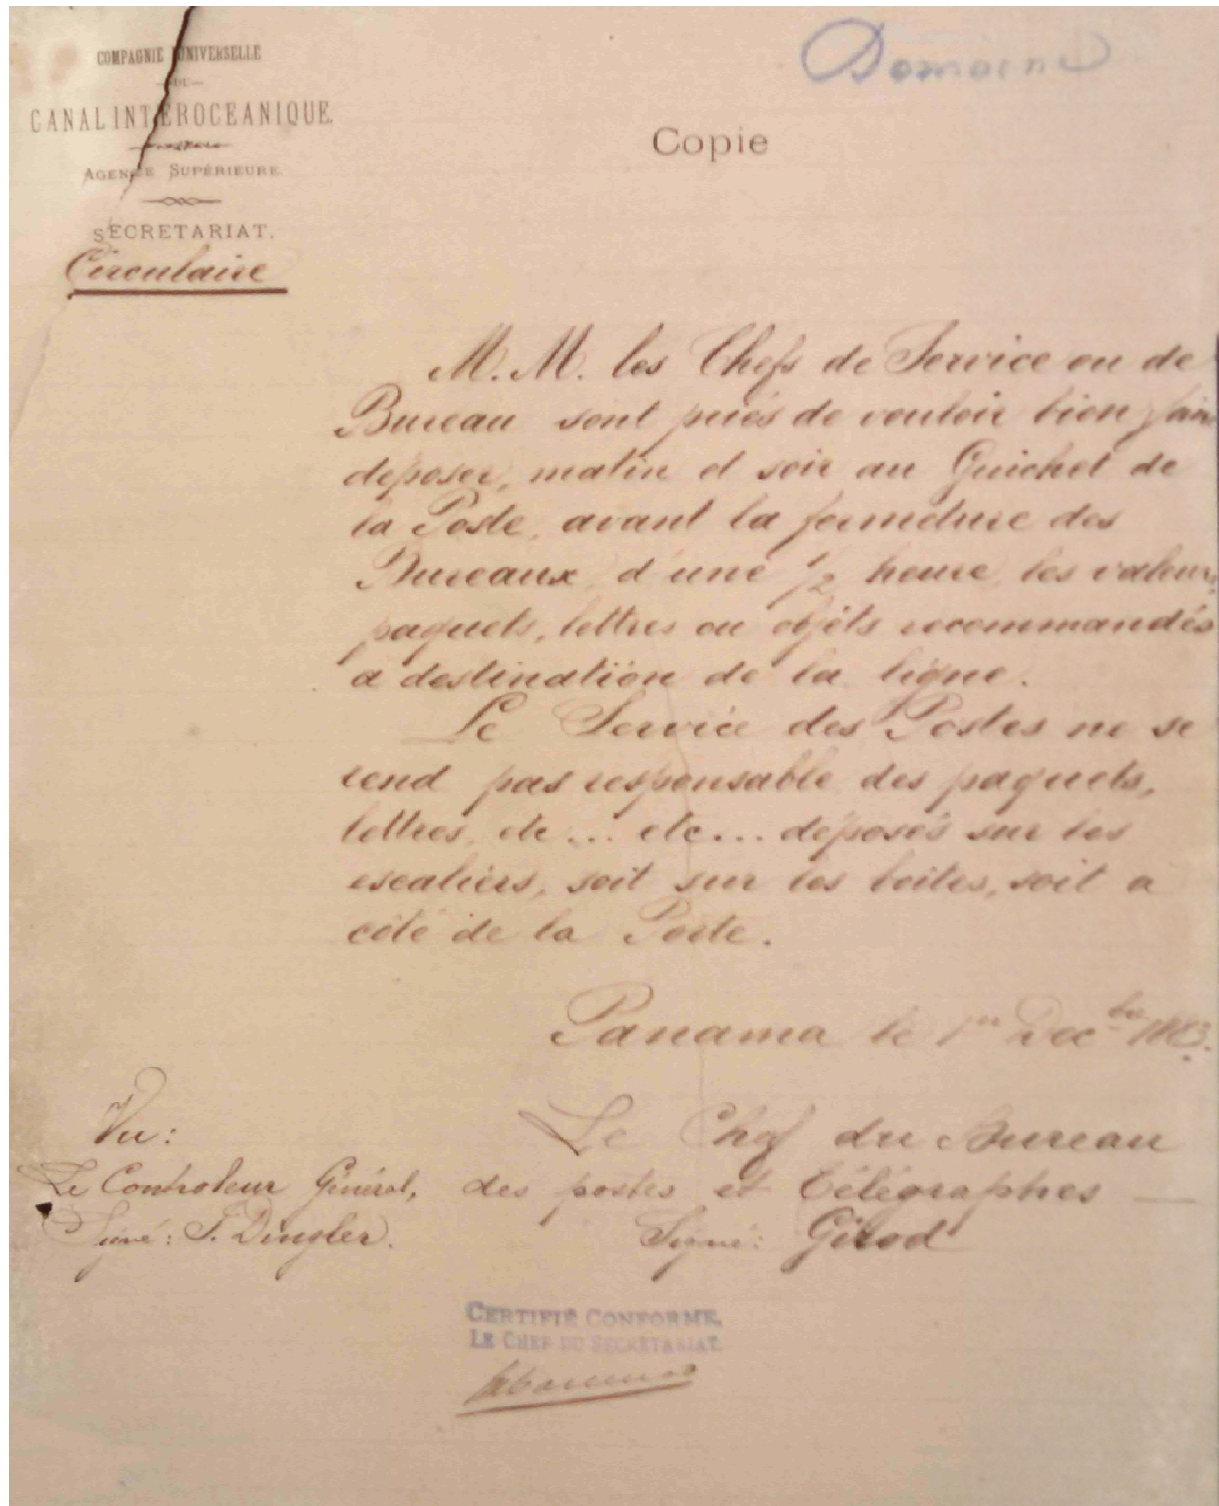 COMPAGNIE UNIVERSELLE
DU
CANAL INTEROCEANIQUE.
AGENCE SUPÉRIEURE.
SECRETARIAT.
Circulaire
Domaine
Copie
M. M. les Chefs de Service ou de
Bureau sont priés de vouloir bien faire
déposer, matin et soir au Guichet de
la Poste, avant la fermeture des
Bureaux d'une 1/2 heure, les valeurs,
paquets, lettres ou objets recommandés
a destination de la ligne.
Le Service des Postes ne se
rend pas responsable des paquets,
lettres, etc... etc... déposés sur les
escaliers, soit sur les boites, soit a
côté de la Poste.
Panama le 1er Decbre 1883.
Vu:
Le Controleur Général,
Signé: J. Dingler.
Le Chef du Bureau
des postes et télégraphes —
Signé: Girod
CERTIFIÉ CONFORME,
LE CHEF DU SECRÉTARIAT.